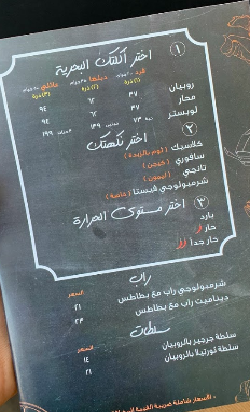 ① اختر أكلتك البحرية
فرد دبلها عائلي
(٢) ذرة
روبيان ٣٧ ٦٢ ٩٤
محار ٣٧ ٦٢ ٩٤
لوبستر ٧٣ ١٣٩ ١٩٩
② اختر نكهتك
كلاسيك (ثوم بالزبدة)
سافوري (كيجن)
تانجي (ليمون)
شرمبولوجي فيستا (خاصة)
③ اختر مستوى الحرارة
بارد
حار
حار جدا
راب
السعر
شرمبولوجي راب مع بطاطس ٢١
ديناميت راب مع بطاطس ٢٣
سلطات
السعر
سلطة جرجير بالروبيان ١٤
سلطة تورتيلا بالروبيان ٢٩
الأسعار شاملة ضريبة القيمة